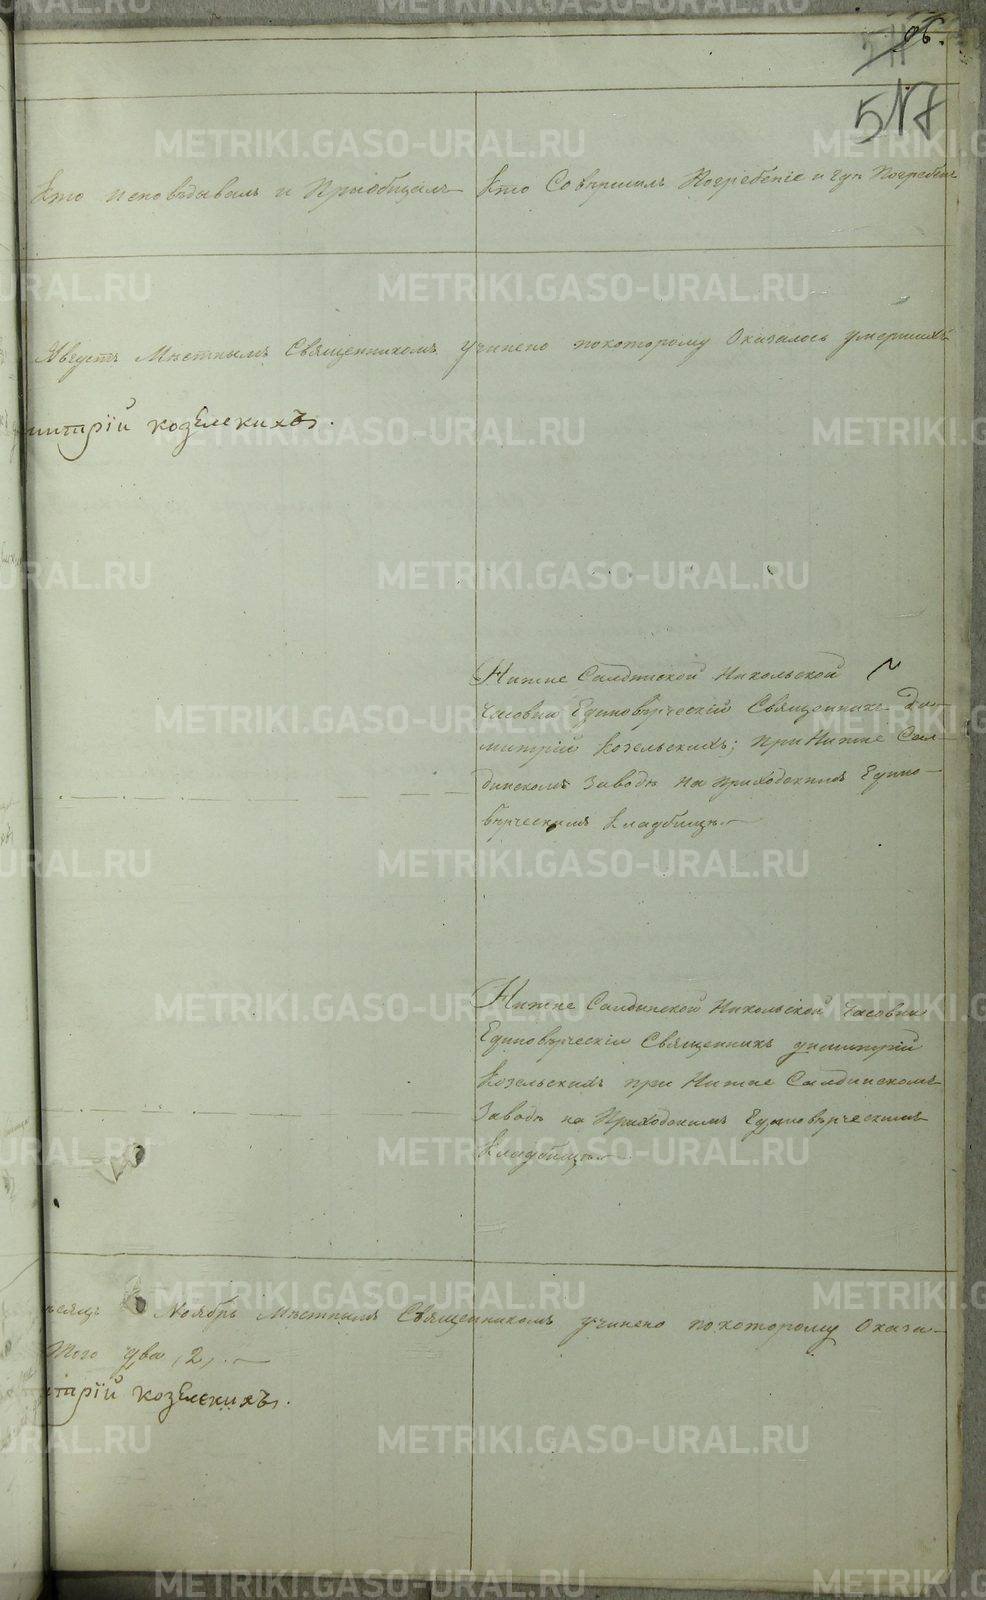 96.
517
Кто исповѣдывалъ и Пріобщалъ
Кто Совершилъ Погребеніе и гдѣ Погребены
Августъ Мѣстнымъ Священникомъ учинено покоторому Оказалось умершихъ
митрій козЕлскихЪ.
Нижне Салдинской Никольской
Часовни Единовѣрческій Священникъ Ди-
митрій Козельскихъ; при Нижне Сал-
динскомъ Заводѣ на Приходскимъ Едино-
вѣрческимъ Кладбищѣ.
Нижне Салдинской Никольской Часовни
Единовѣрческій Священникъ Димитрій
Козельскихъ при Нижне Салдинскомъ
Заводѣ на Приходскимъ Единовѣрческимъ
Кладбищѣ.
мѣсяцъ Ноябрь Мѣстнымъ Священникомъ учинено покоторому Оказа-
Того два, 2,.
итрій козЕлскихЪ.
METRIKI.GASO-URAL.RU